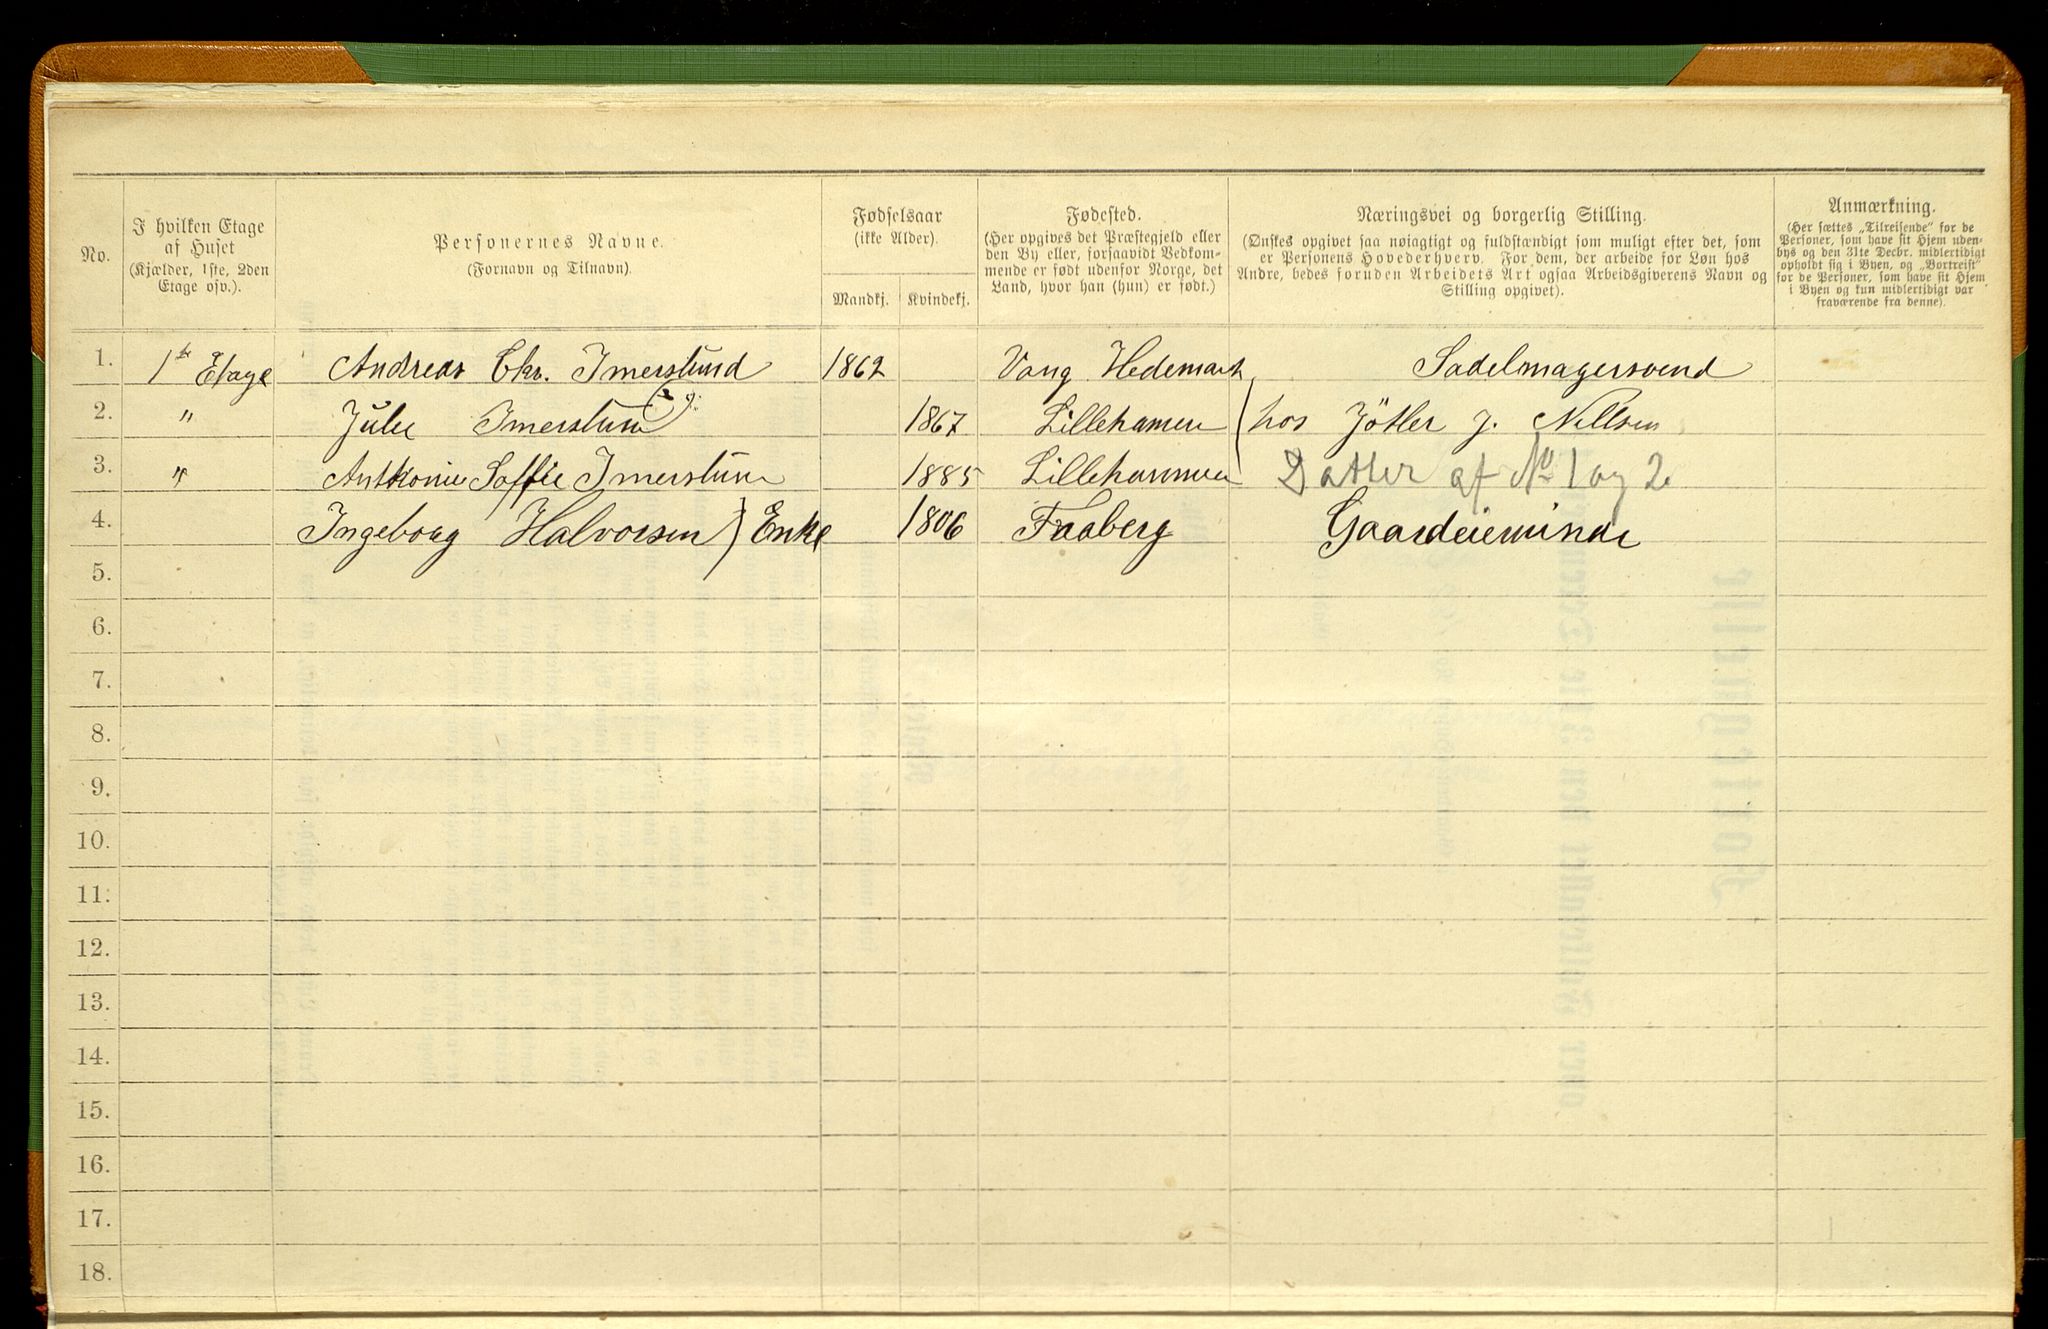 No.
I hvilken Etage
af Huset
(Kjælder, 1ste, 2den
Etage osv.).
Personernes Navne.
(Fornavn og Tilnavn).
Fødselsaar
(ikke Alder).
Mandkj. Kvindekj.
Fødested.
(Her opgives det Præstegjeld eller
den By eller, forsaavidt Vedkom-
mende er født udenfor Norge, det
Land, hvor han (hun) er født.)
Næringsvei og borgerlig Stilling.
(Ønskes opgivet saa nøiagtigt og fuldstændigt som muligt efter det, som
er Personens Hovederhverv. For dem, der arbeide for Løn hos
Andre, bedes foruden Arbeidets Art ogsaa Arbeidsgiverens Navn og
Stilling opgivet).
Anmærkning.
(Her sættes „Tilreisende“ for de
Personer, som have sit Hjem uden-
bys og den 31te Decbr. midlertidigt
opholdt sig i Byen, og „Bortreist“
for de Personer, som have sit Hjem
i Byen og kun midlertidigt var
fraværende fra denne).
1. 1ste Etage Andreas Chr. Imerslund 1862 Vang Hedemark Sadelmagersvend
2. " Julie Imerslun 1867 Lillehamer hos Jötler J. Nillsen
3. " Anthonie Soffie Imerslun 1885 Lillehammer Datter af No 1 og 2
4. Ingeborg Halvorsen ) Enke 1806 Faaberg Gaardeierinde
5.
6.
7.
8.
9.
10.
11.
12.
13.
14.
15.
16.
17.
18.